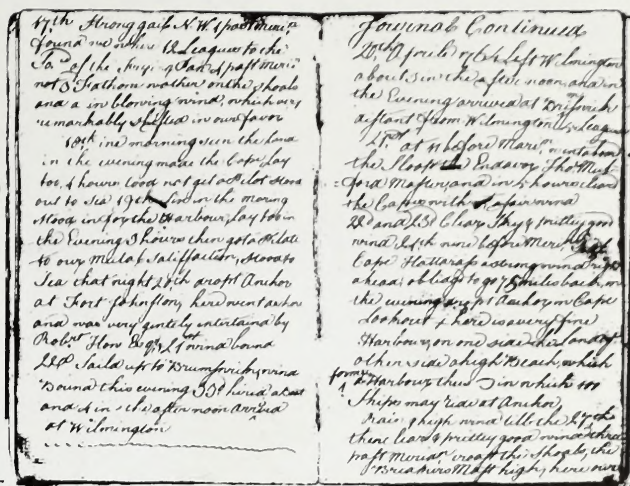 17th Strong gail N.W. 1 past Meri.n
found we where 12 Leagues to the
of the frying Pan 4 past Meri.n
not 3 Fathom wather on the Shoals
and a in blowing wind, which very
remarkably shifted in our favor
18th in morning seen the Land
in the evening made the Cape, Lay
too, 4 hours Cood not get a Pilot stood
out to Sea 19th in the morning
stood in for the Harbour, lay too in
the Evening 3 hours then got a Pilate
to our Satisffaction, stood to
Sea that night 20th dropt Anchor
at Fort Johnston, here went ashore
and was very gintely intertaind by
Robert How Esqr 21st wind bound
22d Saild up to Brumswick, wind
Bound this evening 23d hired a Boat
and 4 in the afternoon arrived
at Wilmington
Journal Continued
20th Aprile 1764 Left Wilmington
about 3 in the after noon, and in
the Evening arrived at
distant from Wilmington 5 Leagues
21st at 11 before Meri.n went abord
the Sloop the Endavor Tho.s
ford Master, and in 5 hours cleard
the Cape with a fair wind
22d and 23d Clear Sky & prittey good
wind 24th nine before Meri.n
Cape Hattaras a strong wind right
ahead; obliag'd to go 75 miles back, in
the evening dropt Anchor, in Cape
Lookout & here is a very fine
Harbour, on one side the Land of
other side a high Beach, which
forms a Harbour thus in which 100
Ships may ride at Anchor
Rain & high wind till the 27th
then clear & prittey good wind three
past Merian crost the Shoals, the
Breakers Mast high, here over